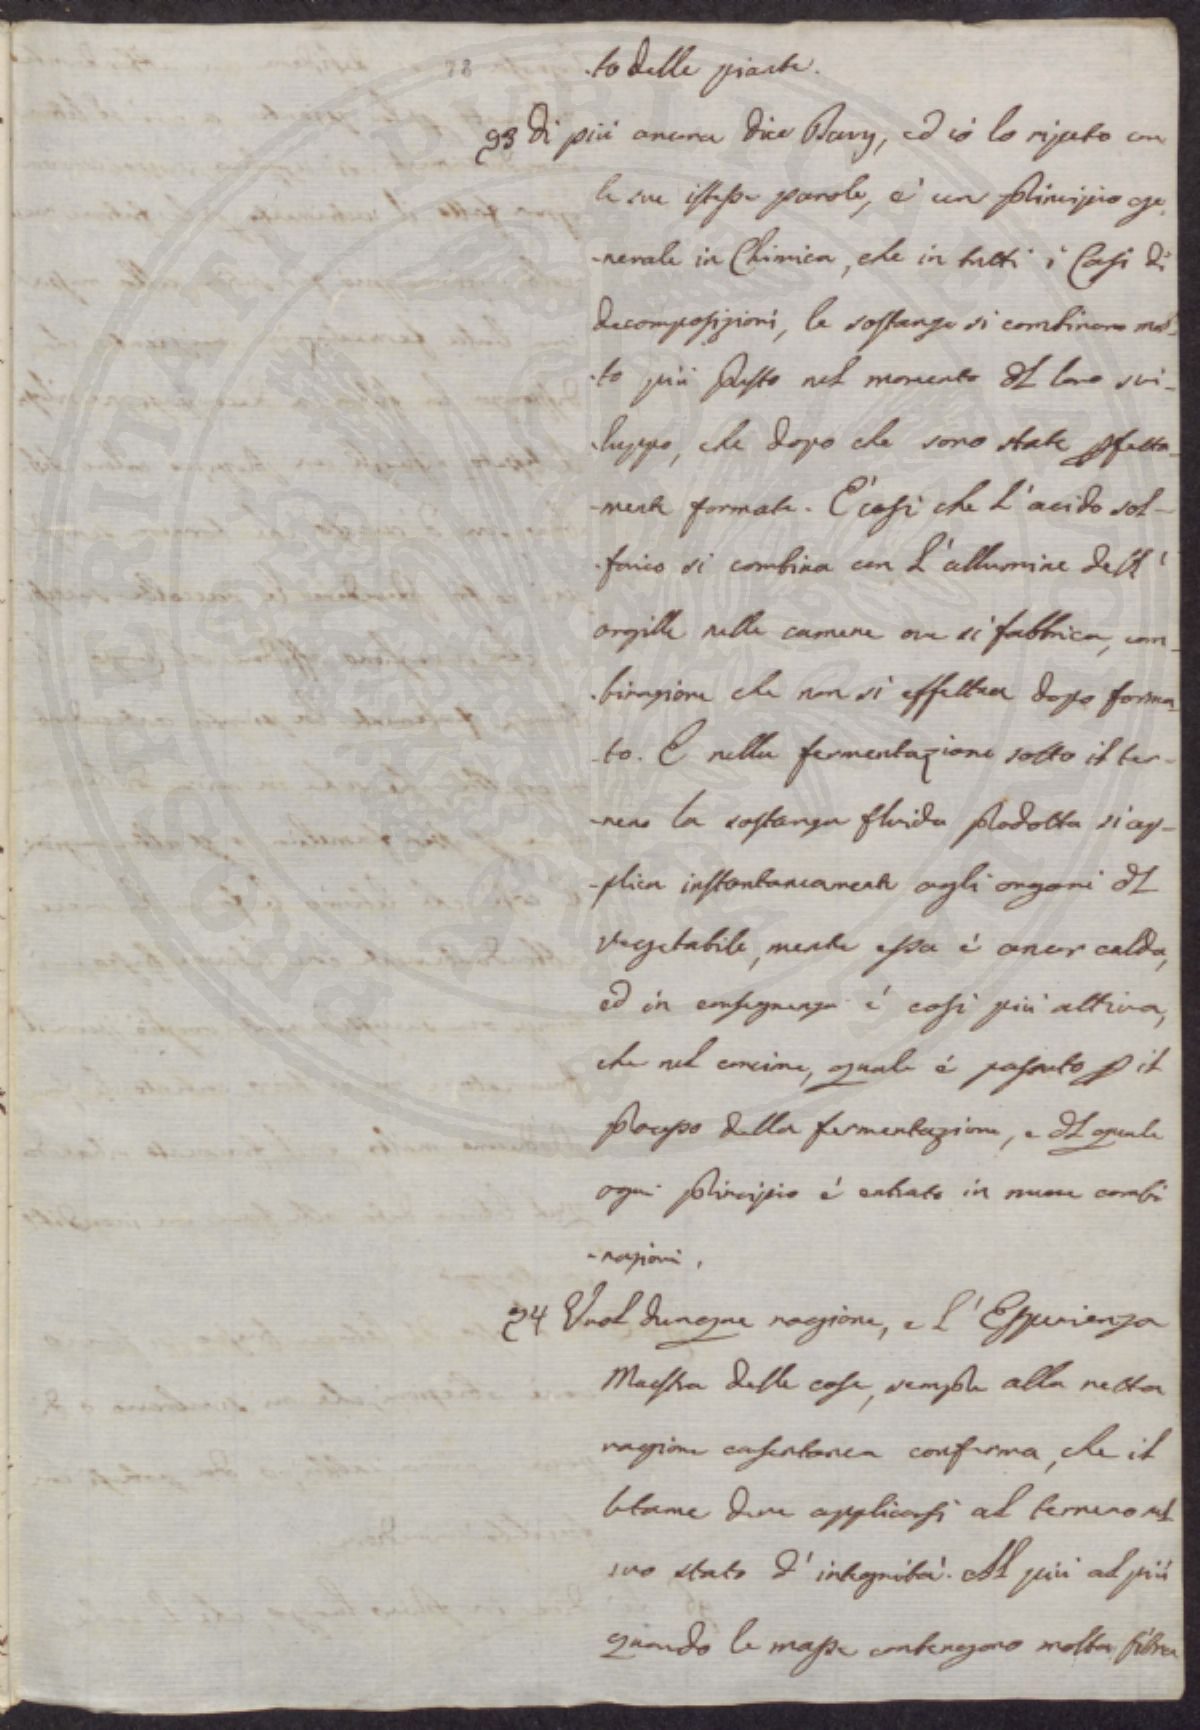 -to delle piante.
93 Di più ancora dice Davy, ed io lo ripeto con
le sue istesse parole, è un principio ge-
-nerale in Chimica, che in tutti i Casi di
decomposizioni, le sostanze si combinano mol-
-to più presto nel momento del loro svi-
-luppo, che dopo che sono state perfetta-
-mente formate. È così che l'acido sol-
-forico si combina con l'allumine dell'
argille nelle camere ove si fabbrica, com-
-binazione che non si effettua dopo forma-
-to. E nella fermentazione sotto il ter-
-reno la sostanza fluida prodotta si ap-
-plica instantaneamente agli organi del
vegetabile, mentre essa è ancor calda,
ed in conseguenza è così più attiva,
che nel concime, quale è passato p il
processo della fermentazione, e del quale
ogni principio è entrato in nuove combi
-nazioni.
94 Vuol dunque ragione, e l'Esperienza
Maestra delle cose, sempre alla retta
ragione consentanea conferma, che il
letame deve applicarsi al terreno nel
suo stato d'integrità. Al più al più
quando le masse contengono molta fibra